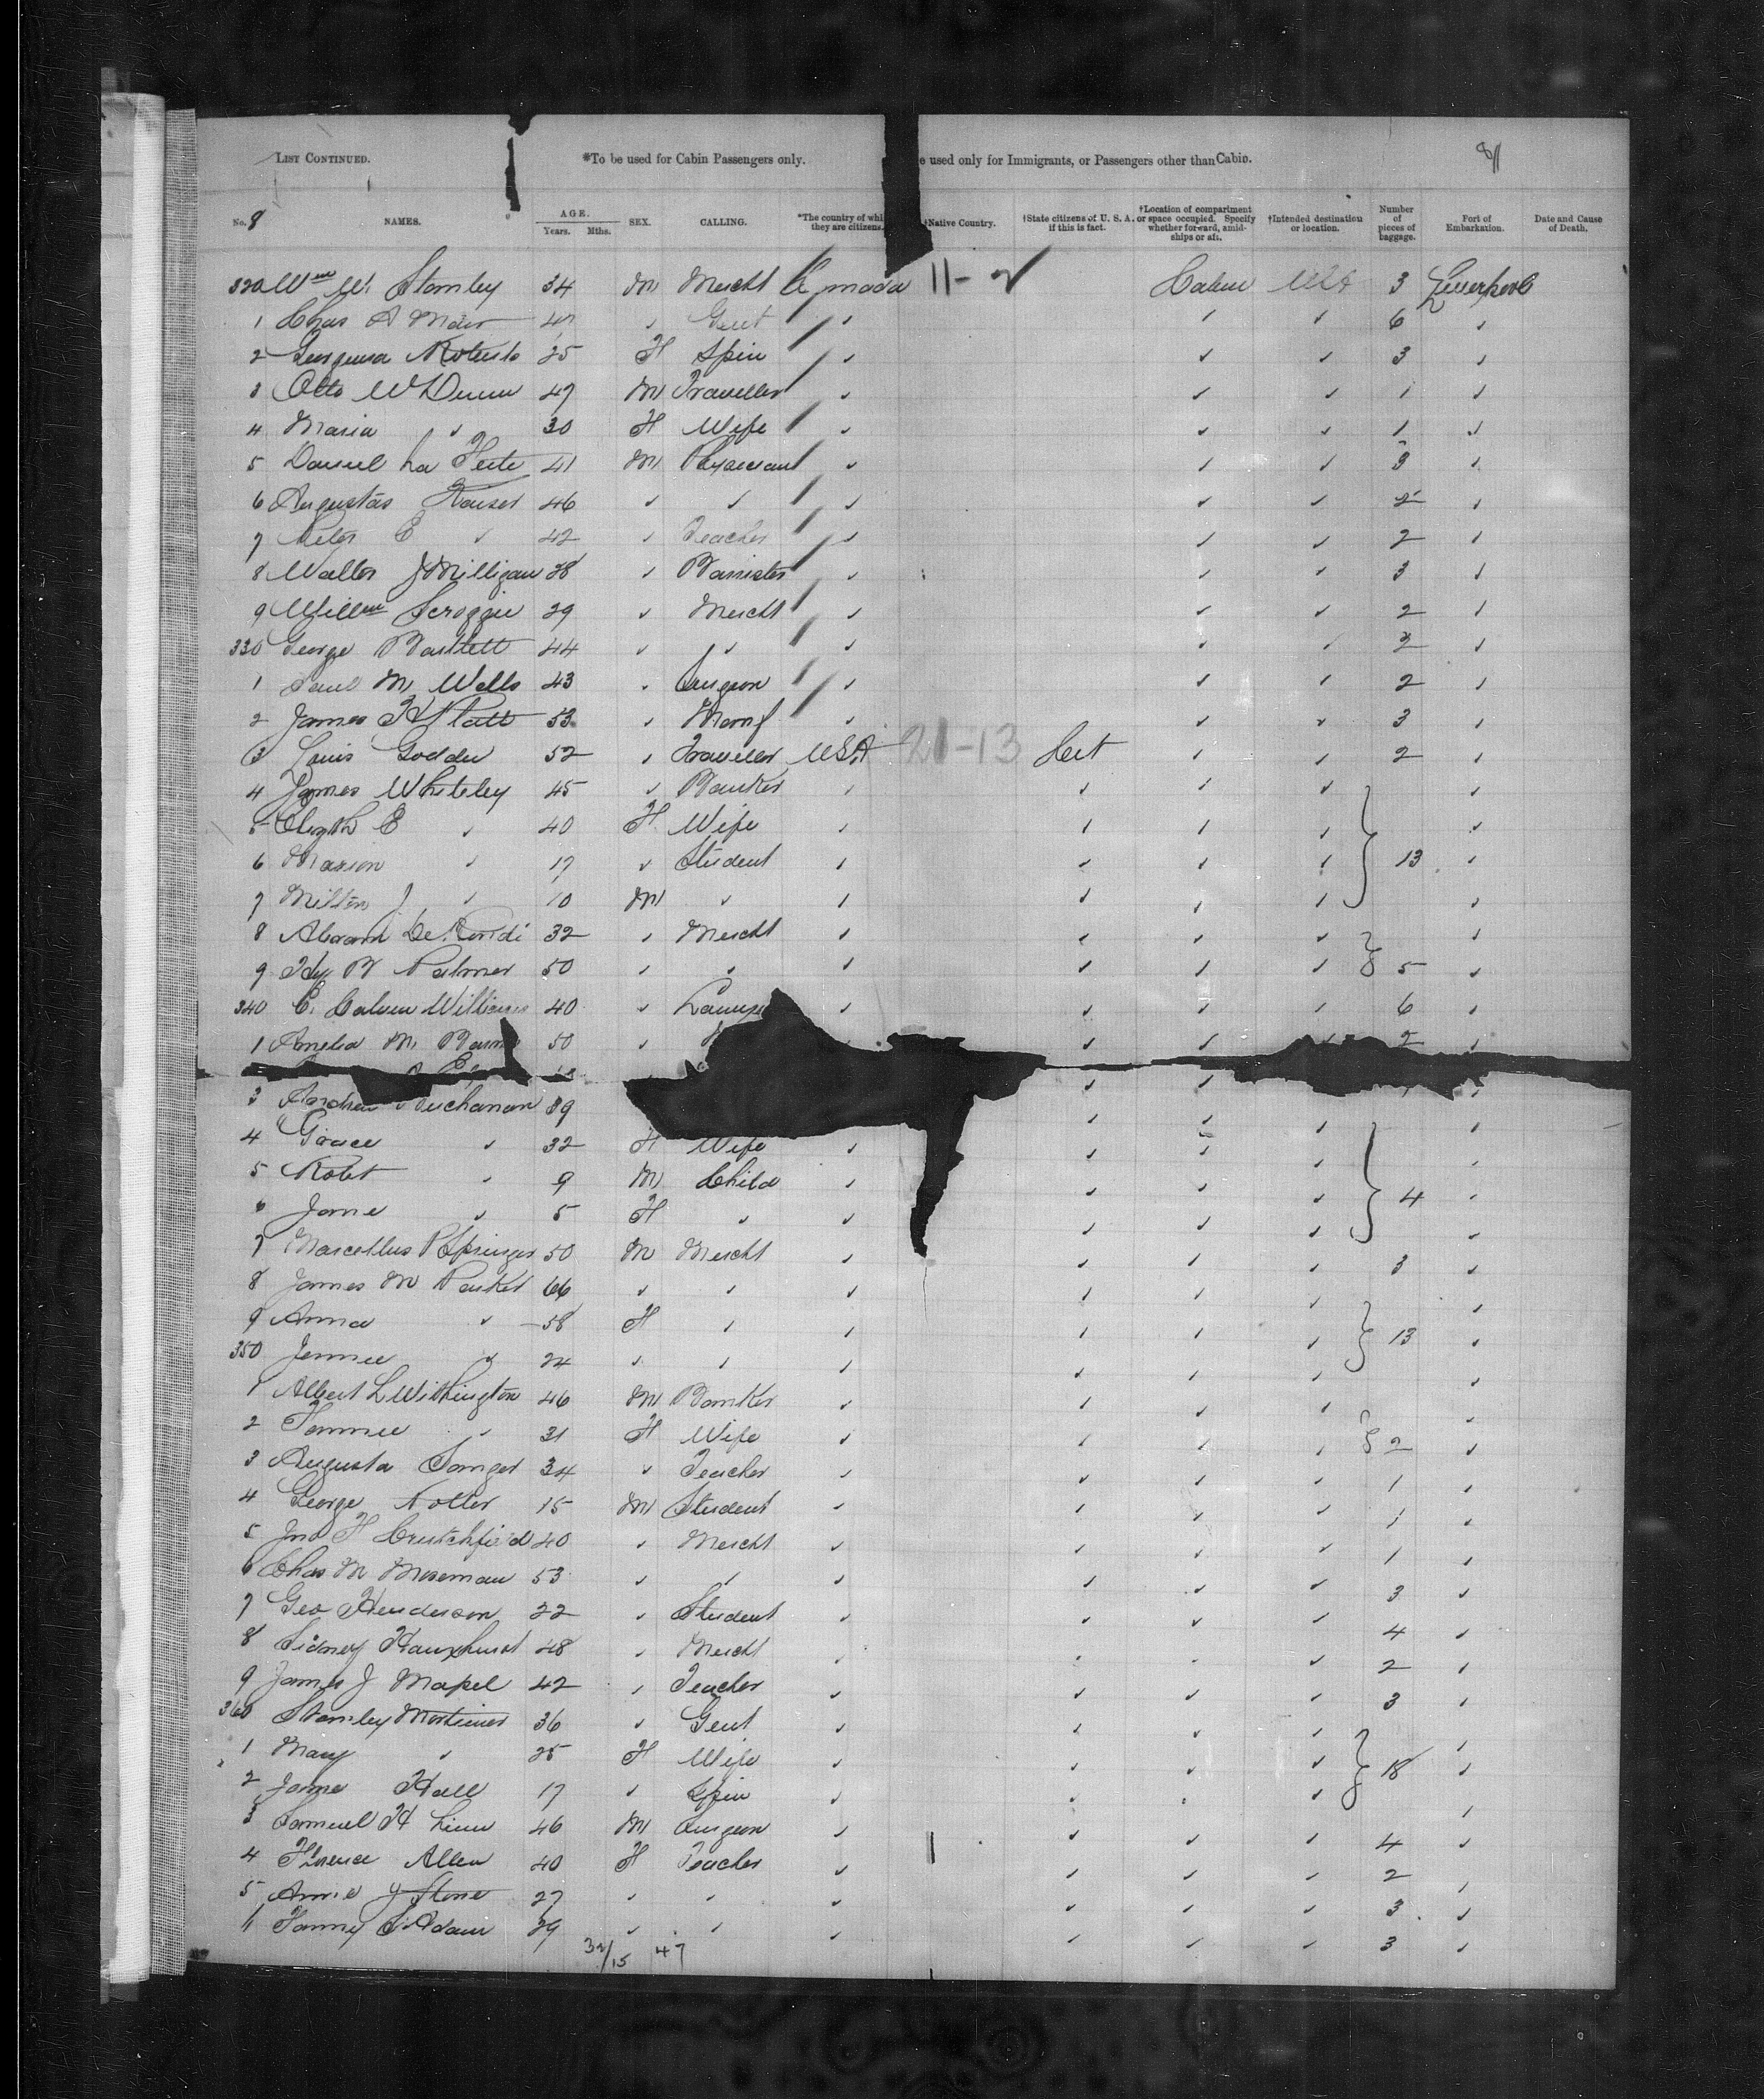 LIST CONTINUED. *To be used for Cabin Passengers only. e used only for Immigrants, or Passengers other than Cabin. 8
No. 8 NAMES. AGE. Years. Mths. SEX. CALLING. *The country of whi they are citizens. †Native Country. †State citizens of U. S. A. if this is fact. †Location of compartment or space occupied. Specify whether forward, amidships or aft. †Intended destination or location. Number of pieces of baggage. Port of Embarkation. Date and Cause of Death.
320 Wm W. Stanley 34 M Mercht Canada 11- Cabin USA 3 Liverpool
1 Chas A 47 ✓ Gent ✓ ✓ ✓ 6 ✓
2 Georgina Roberts 25 F Spin ✓ ✓ ✓ 3 ✓
3 Otto W Dunn 47 M Traveller ✓ ✓ ✓ 1 ✓
4 Maria ✓ 30 F Wife ✓ ✓ ✓ 1 ✓
5 Daniel La 41 M Physician ✓ ✓ ✓ 3 ✓
6 Augustas Kaiser 46 ✓ ✓ ✓ ✓ ✓ 2 ✓
7 Peter E ✓ 42 ✓ Teacher ✓ ✓ ✓ 2 ✓
8 Walter J Milligan 28 ✓ Barrister ✓ ✓ ✓ 3 ✓
9 Willm Scroggie 29 ✓ Mercht ✓ ✓ ✓ 2 ✓
330 George Bartlett 44 ✓ ✓ ✓ ✓ ✓ 2 ✓
1 Saml M Wells 43 ✓ Surgeon ✓ ✓ ✓ 2 ✓
2 James H Platt 53 ✓ Manf ✓ ✓ ✓ 3 ✓
3 Louis Goddu 52 ✓ Traveller USA 21-13 Cit ✓ ✓ 2 ✓
4 James Whiteley 45 ✓ Banker ✓ ✓ ✓ ✓ ✓
5 Elizth E ✓ 40 F Wife ✓ ✓ ✓ ✓ ✓
6 Marion ✓ 17 ✓ Student ✓ ✓ ✓ ✓ 13 ✓
7 Milton J ✓ 10 M ✓ ✓ ✓ ✓ ✓ ✓
8 Abram De 32 ✓ Mercht ✓ ✓ ✓ ✓ ✓
9 Hy B Palmer 50 ✓ ✓ ✓ ✓ ✓ ✓ 5 ✓
340 C. Calvin Williams 40 ✓ Lawye ✓ ✓ ✓ ✓ 6 ✓
1 Amelia M. Barn 50 ✓ ✓ ✓ ✓ 2 ✓
3 Andrew Buchanan 39 ✓ ✓ ✓ ✓
4 Grace ✓ 32 F Wife ✓ ✓ ✓ ✓ ✓
5 Robt ✓ 9 M Child ✓ ✓ ✓ ✓ 4 ✓
6 Jane ✓ 5 F ✓ ✓ ✓ ✓ ✓ ✓
7 Marcellus P Springer 50 M Mercht ✓ ✓ ✓ ✓ 3 ✓
8 James M Parker 66 ✓ ✓ ✓ ✓ ✓ ✓ ✓
9 Anna ✓ 58 F ✓ ✓ ✓ ✓ ✓ 13 ✓
350 Jennie ✓ 24 ✓ ✓ ✓ ✓ ✓ ✓ ✓
1 Albert L Withington 46 M Banker ✓ ✓ ✓ ✓ ✓
2 Fannie ✓ 31 F Wife ✓ ✓ ✓ ✓ 2 ✓
3 Augusta Sanger 34 ✓ Teacher ✓ ✓ ✓ ✓ 1 ✓
4 George Kotter 15 M Student ✓ ✓ ✓ ✓ 1 ✓
5 Jno F Crutchfield 40 ✓ Mercht ✓ ✓ ✓ ✓ 1 ✓
6 Chas M Moseman 53 ✓ ✓ ✓ ✓ ✓ ✓ 3 ✓
7 Geo Henderson 22 ✓ Student ✓ ✓ ✓ ✓ 4 ✓
8 Sidney Hauxhurst 48 ✓ Mercht ✓ ✓ ✓ ✓ 2 ✓
9 James J Mapel 42 ✓ Teacher ✓ ✓ ✓ ✓ 3 ✓
360 Stanley Mortimer 36 ✓ Gent ✓ ✓ ✓ ✓ ✓
1 Mary ✓ 25 F Wife ✓ ✓ ✓ ✓ 18 ✓
2 Jane Hall 17 ✓ Spin ✓ ✓ ✓ ✓ ✓
3 Samuel H Linn 46 M Surgeon ✓ ✓ ✓ ✓ 4 ✓
4 Florence Allen 40 F Teacher ✓ ✓ ✓ ✓ 2 ✓
5 Annie J Stone 27 ✓ ✓ ✓ ✓ ✓ ✓ 3 ✓
6 Fanny S Adam 29 ✓ ✓ ✓ ✓ ✓ ✓ 3 ✓
32/15 47